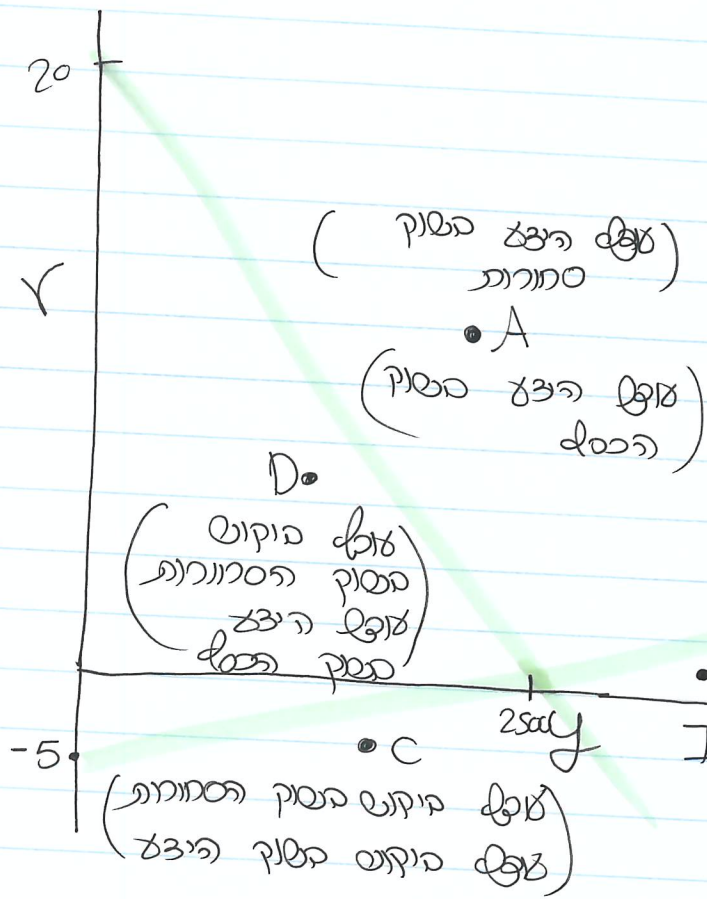 20
(עודף היצע בשוק
סחורות)
r
A
(עודף היצע בשוק
הכסף)
D
(עודף ביקוש
בשוק הסחורות
עודף היצע
בשוק הכסף)
2500 y
-5
C
(עודף ביקוש בשוק הסחורות
עודף ביקוש בשוק היצע)